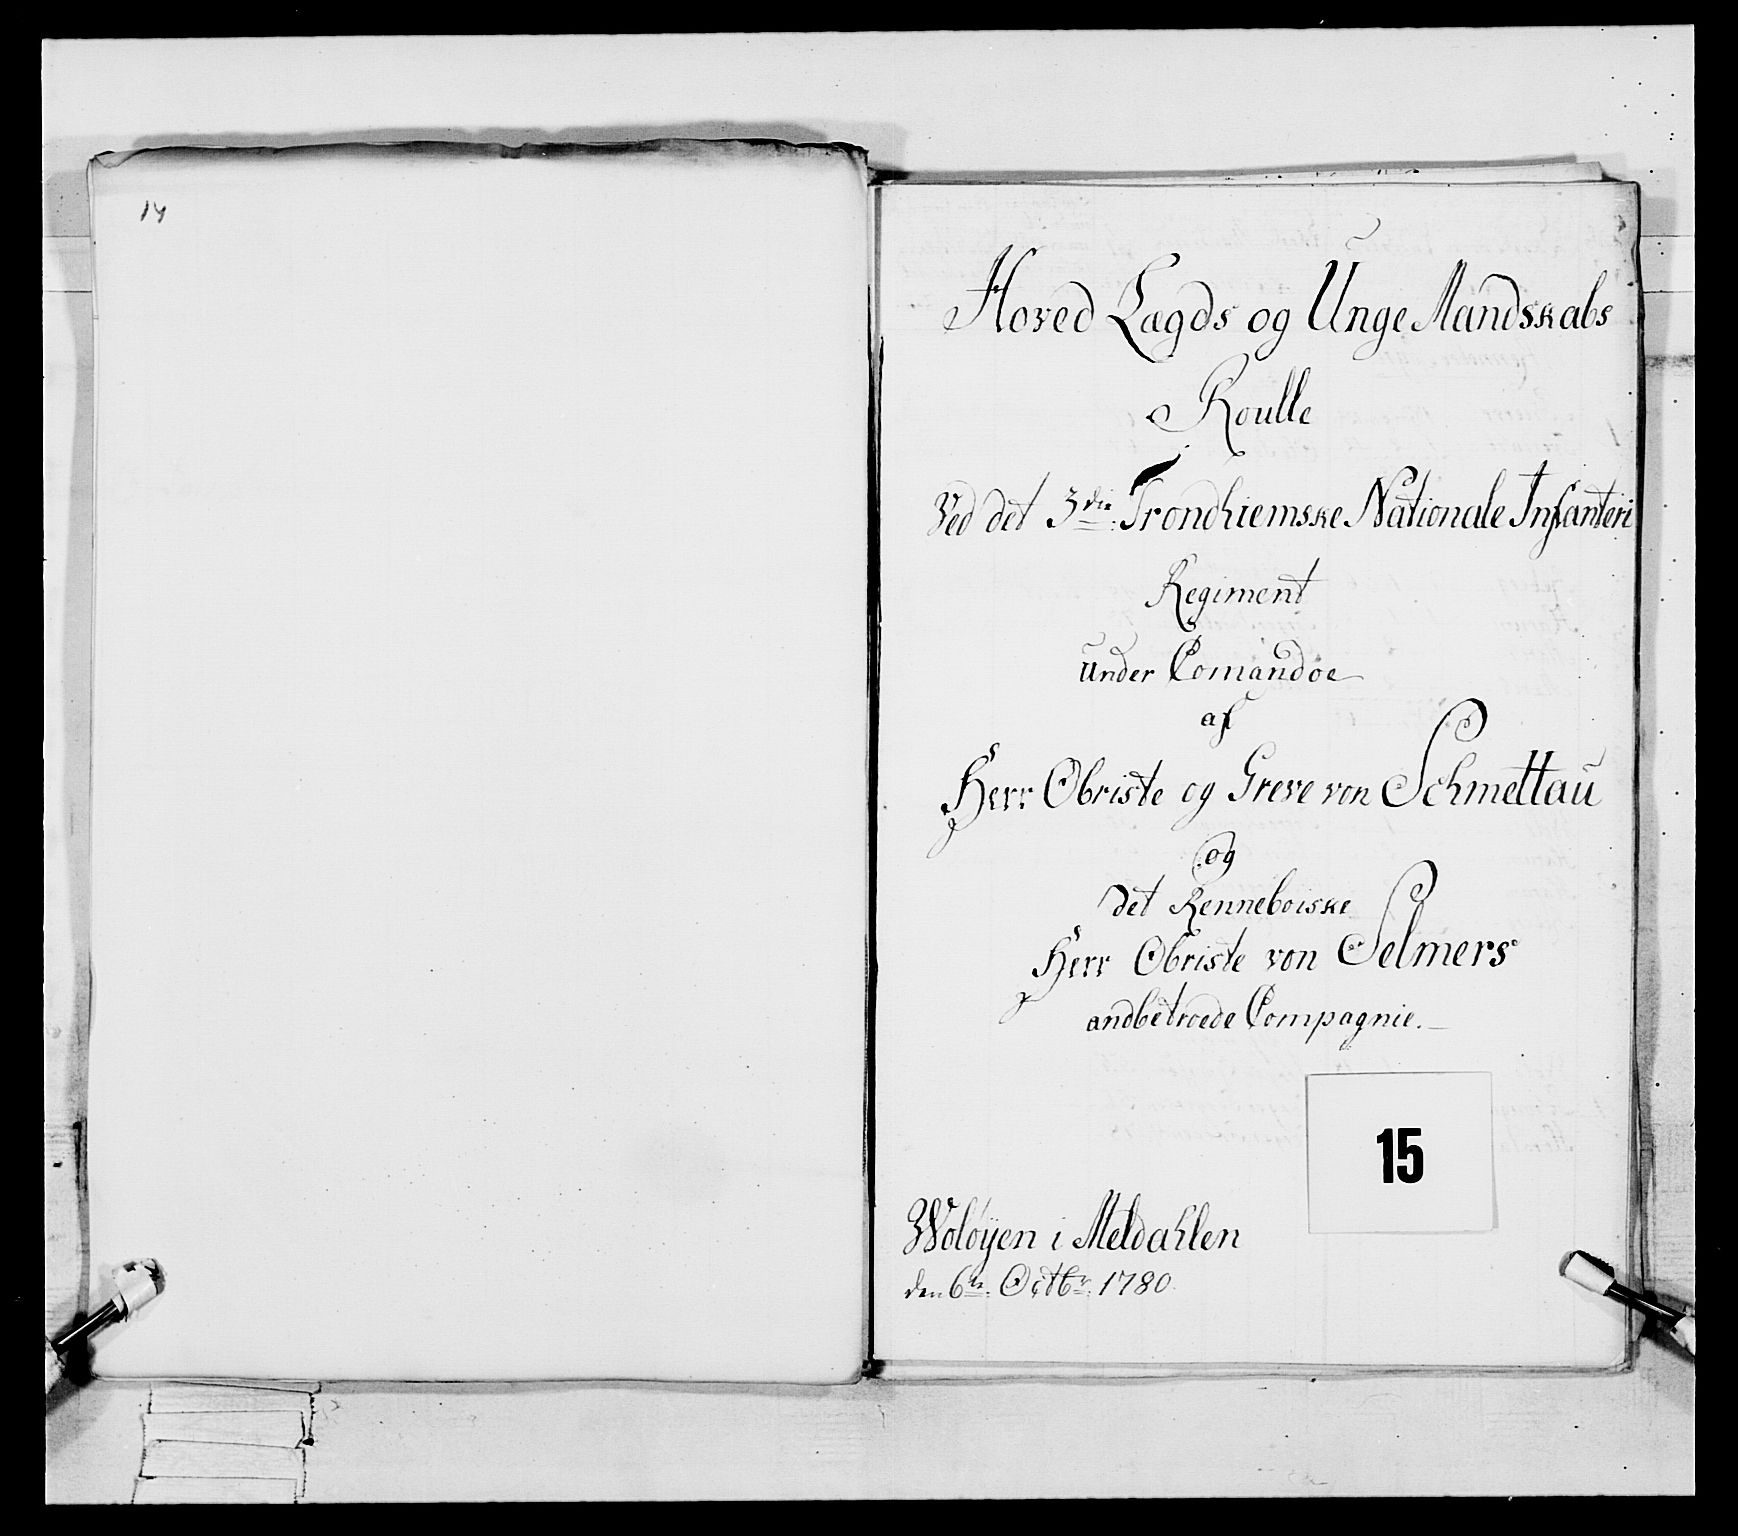 14
Hoved Lægds og Unge Mandskabs
Roulle
Ved det 3die Trondhiemske Nationale Infanteri
Regiment
under Comandoe
af
Herr Obriste og Greve von Schmettau
og
det Renneboiske
Herr Obriste von Selmers
andbetroede Compagnie.
15
Woløyen i Meldahlen
den 6te Octbr: 1780.